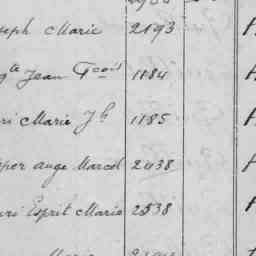 seph Marie 2193
gte Jean Fcois 1184
ri Marie Jh 1185
per ange Marcel 2438
ri Esprit Marie 2538